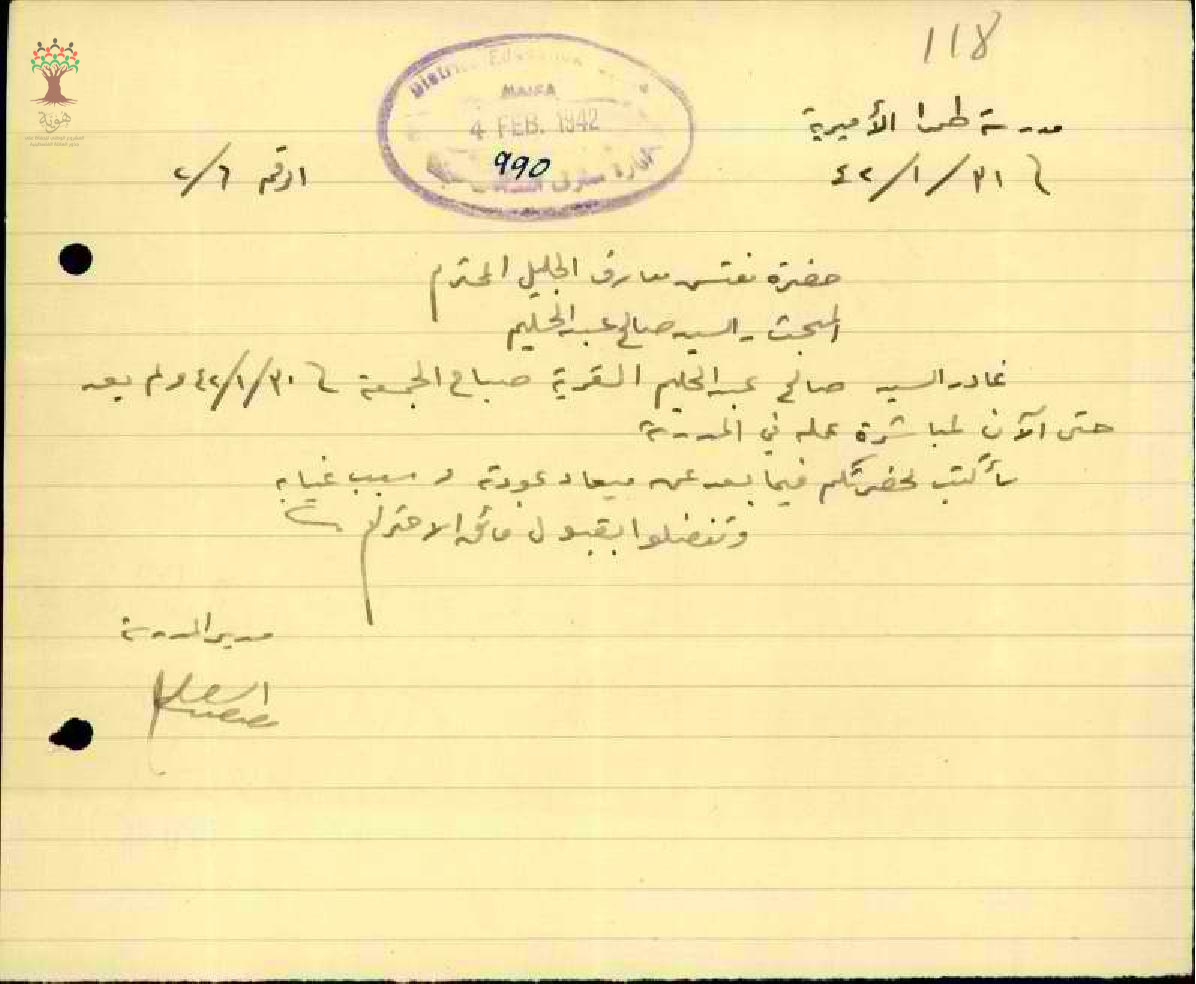 118
مدرسة طمرا الأميرية
٤٢/١/٣١
الرقم ٢/٦
District Education
HAIFA
4 FEB. 1942
990
هوية
حضرة مفتش معارف الجليل المحترم
المبحث - السيد صالح عبد الحليم
غادر السيد صالح عبد الحليم القرية صباح الجمعة ٤٢/١/٣٠ ولم يعد
حتى الآن لمباشرة عمله في المدرسة
سأكتب لحضرتكم فيما بعد عن ميعاد عودته وسبب غيابه
وتفضلوا بقبول فائق الاحترام
مدير المدرسة